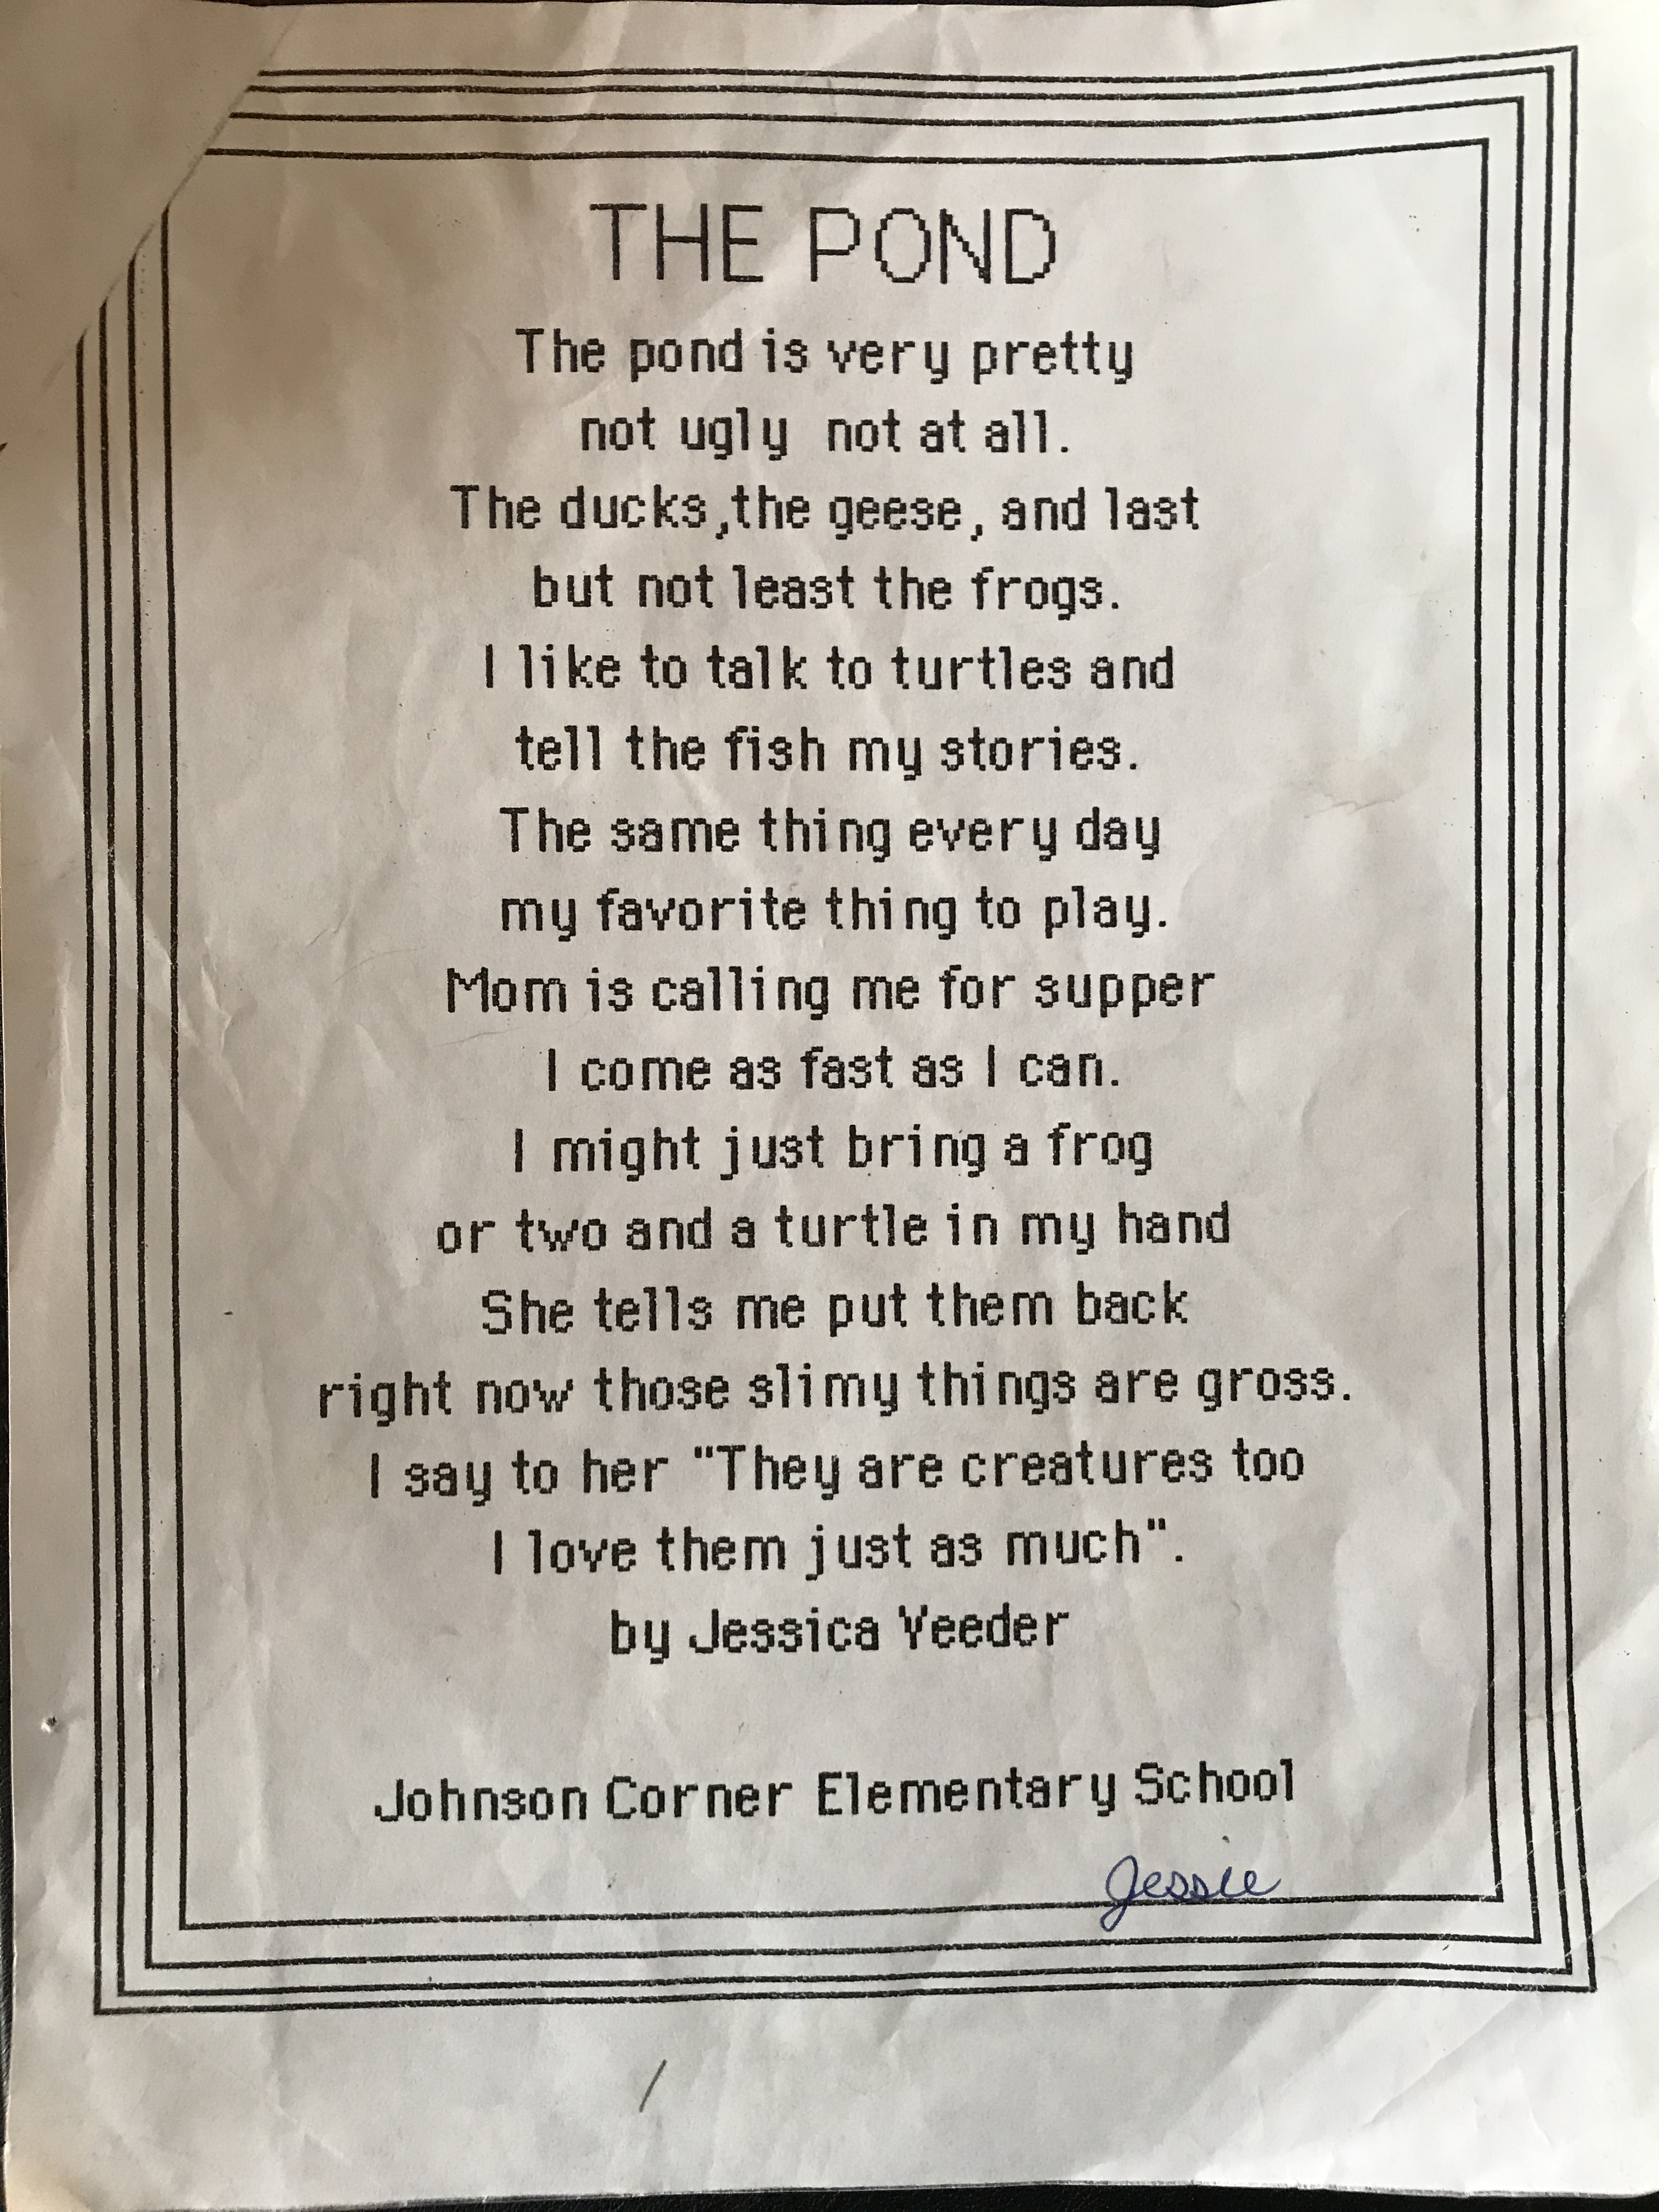 THE POND
The pond is very pretty
not ugly  not at all.
The ducks,the geese, and last
but not least the frogs.
I like to talk to turtles and
tell the fish my stories.
The same thing every day
my favorite thing to play.
Mom is calling me for supper
I come as fast as I can.
I might just bring a frog
or two and a turtle in my hand
She tells me put them back
right now those slimy things are gross.
I say to her "They are creatures too
I love them just as much".
by Jessica Veeder
Johnson Corner Elementary School
Jessie